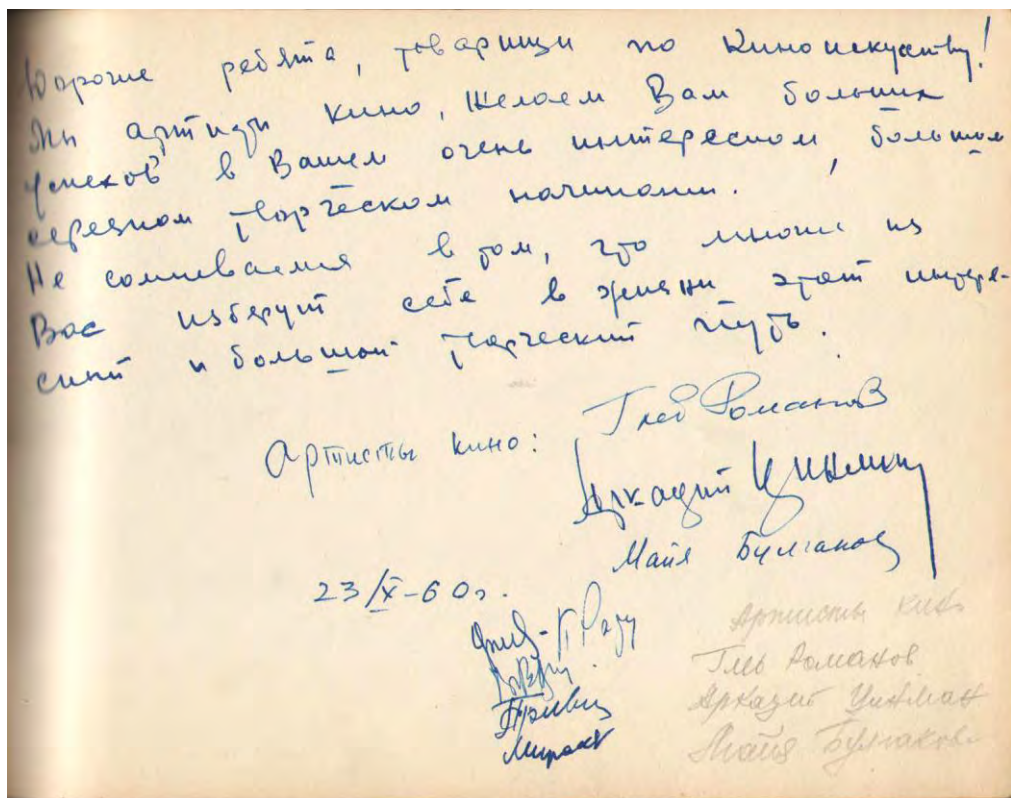 Дорогие ребята, товарищи по Киноискусству!
Мы артисты кино, Желаем Вам больших
успехов в Вашем очень интересном, большом
серезном творческом начинании.
Не сомневаемся в том, что многие из
Вас изберут себе в жизни этот интере-
сный и большой творческий путь.
Артисты кино: Глеб Романов
Аркадий Цинман
Майя Булгакова
23/X-60г.
Артисты кино
Глеб Романов
Аркадий Цинман
Майя Булгакова